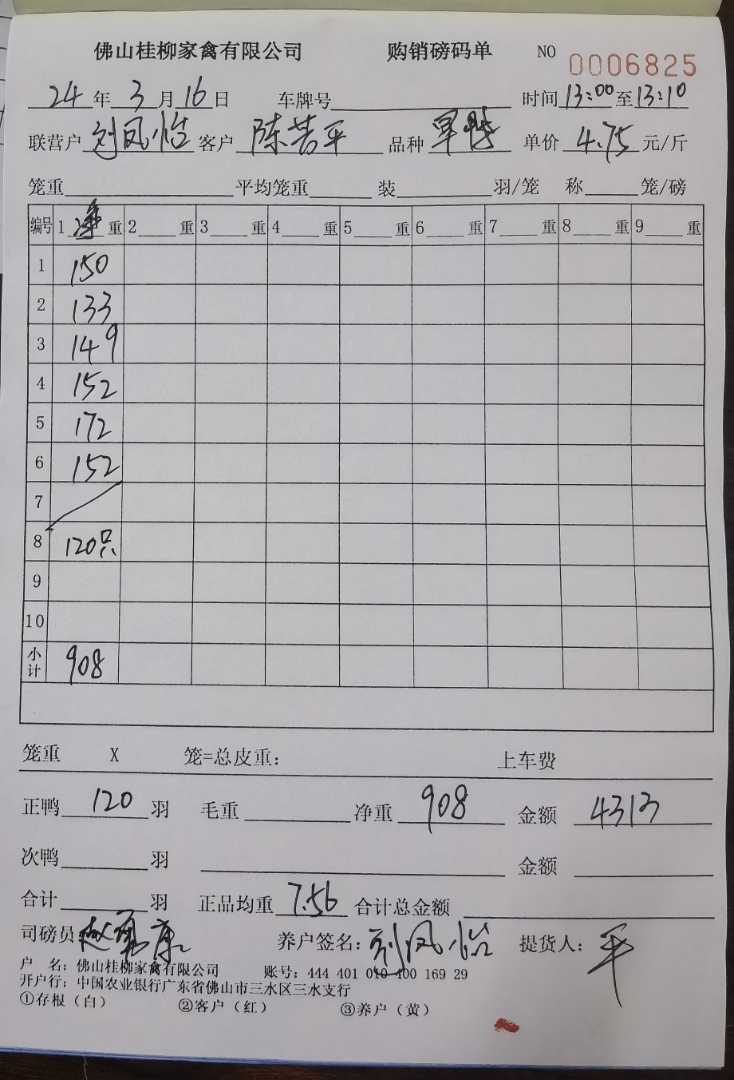 佛山桂柳家禽有限公司 购销磅码单 NO 0006825
24年3月16日 车牌号 时间13:00至13:10
联营户 刘凤怡 客户 陈苦平 品种 单价 4.75 元/斤
笼重 平均笼重 装 羽/笼 称 笼/磅
编号 1 净 重 2 重 3 重 4 重 5 重 6 重 7 重 8 重 9 重
1 150
2 133
3 149
4 152
5 172
6 152
7
8 120只
9
10
小计 908
笼重 X 笼=总皮重: 上车费
正鸭 120 羽 毛重 净重 908 金额 4313
次鸭 羽 金额
合计 羽 正品均重 7.56 合计总金额
司磅员 养户签名: 刘凤怡 提货人: 平
户 名: 佛山桂柳家禽有限公司 账号: 444 401 010 400 169 29
开户行: 中国农业银行广东省佛山市三水区三水支行
①存根(白) ②客户(红) ③养户(黄)